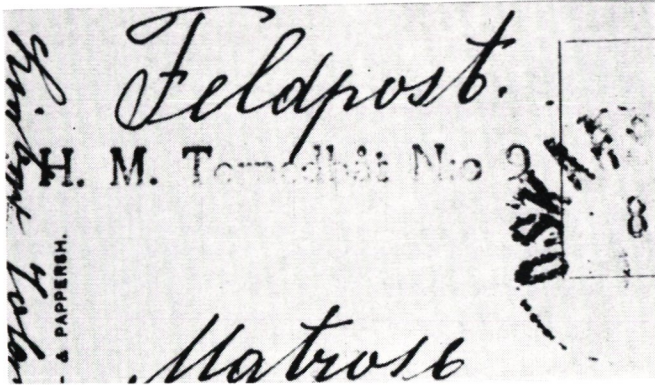 Feldpost.
H. M. Torpedbåt N:o 9
OSKAR
8
Matrose
& PAPPERSH.